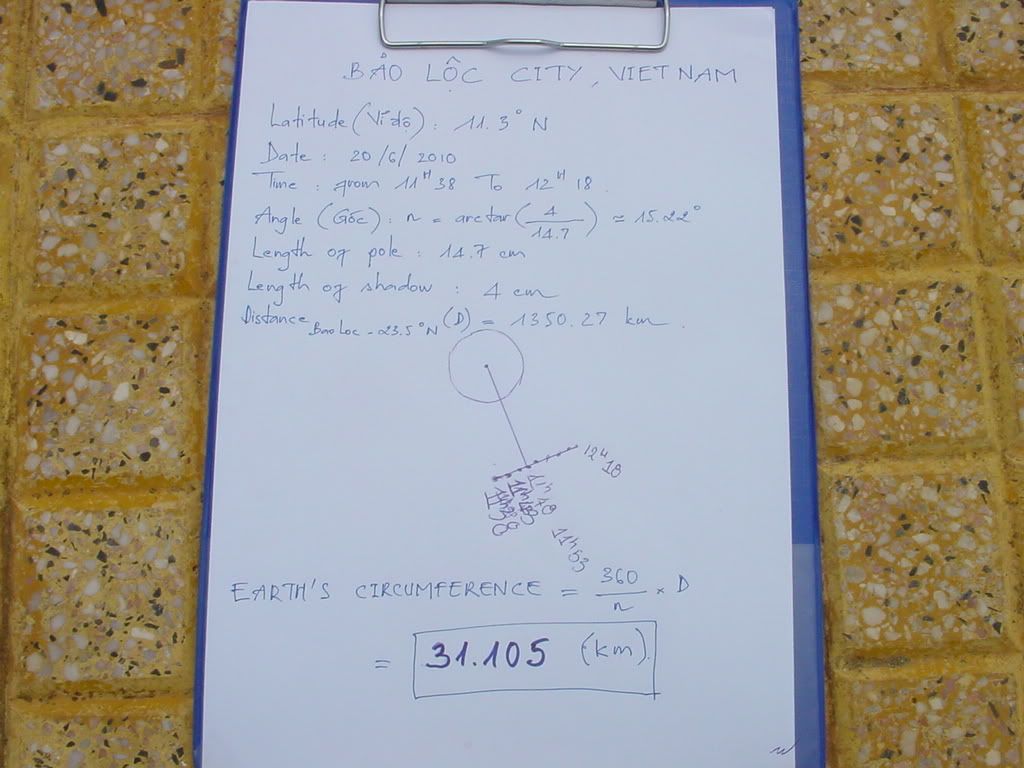 BẢO LỘC CITY, VIETNAM
Latitude (Vĩ độ) : 11.3° N
Date : 20/6/2010
Time : from 11H38 To 12H18.
Angle (Góc) : n = arctan(4/14.7) ≈ 15.22°
Length of pole : 14.7 cm
Length of shadow : 4 cm
Distance Bao Loc - 23.5°N (D) = 1350.27 km.
12H18
11h53
EARTH'S CIRCUMFERENCE = 360/n × D
= 31.105 (km).